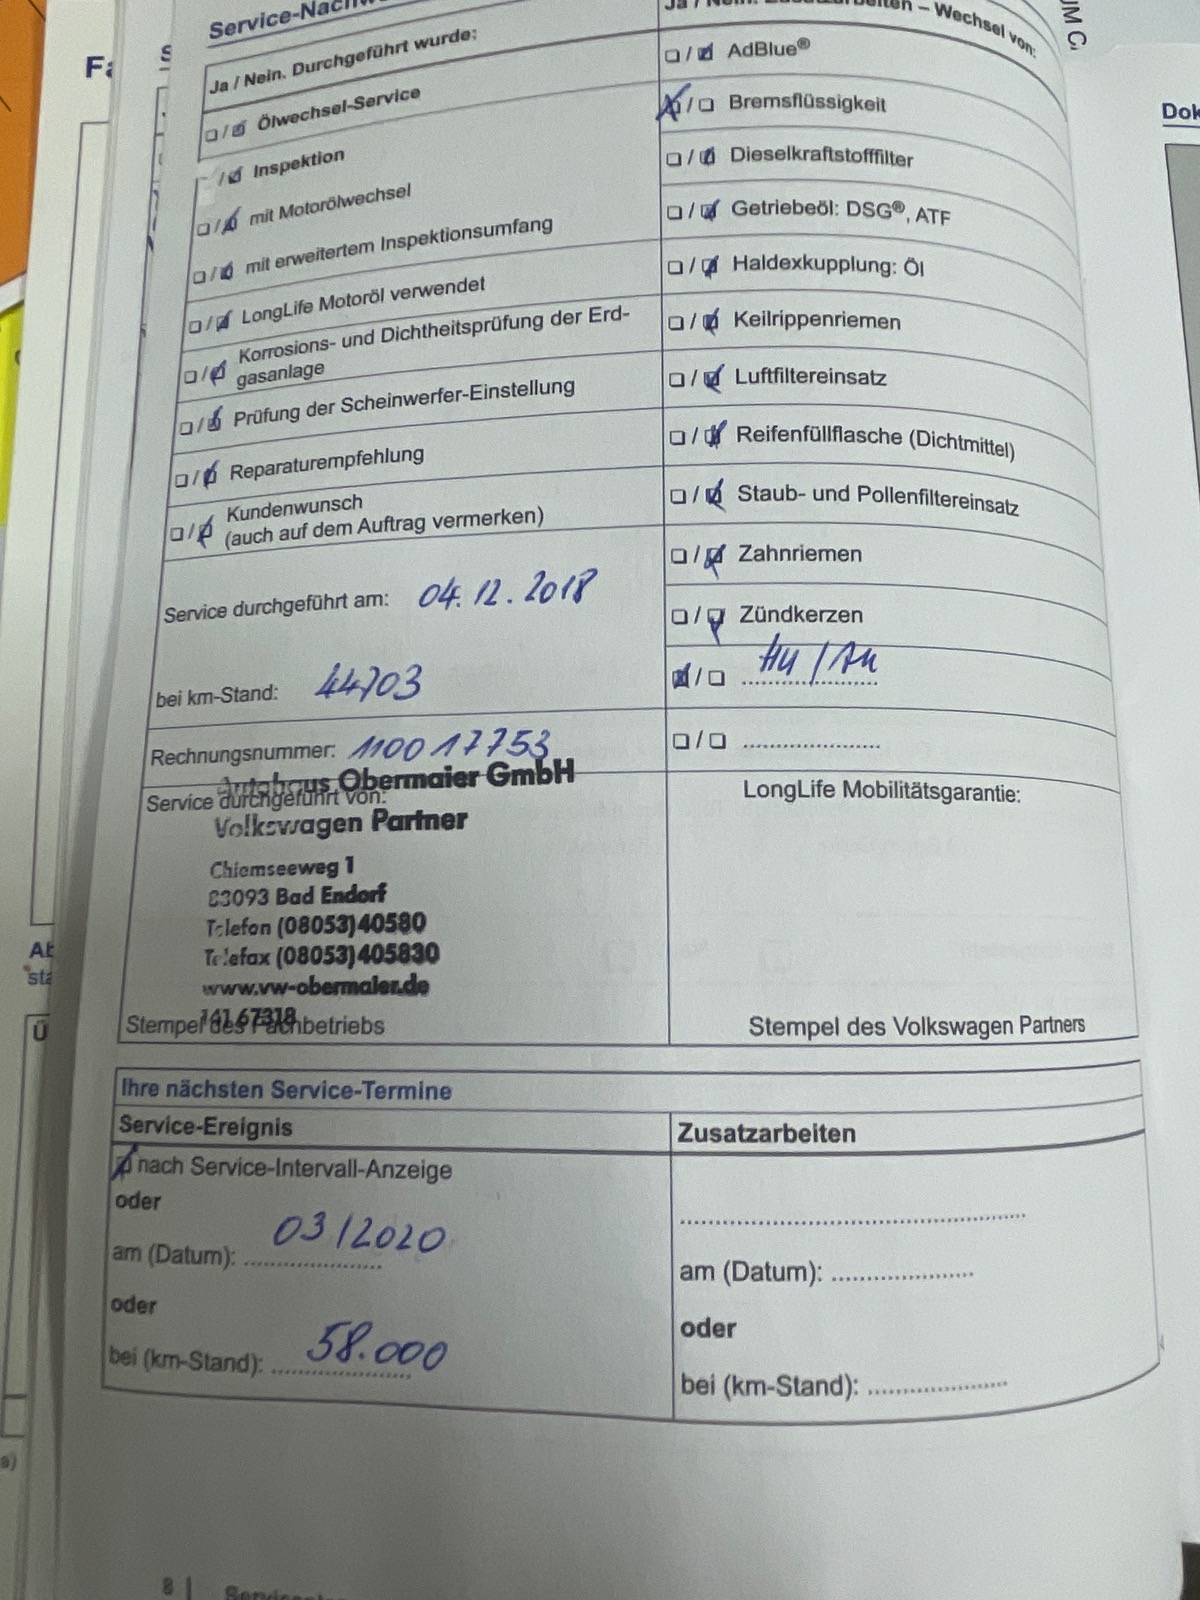 Ja / Nein. Durchgeführt wurde:
☐ / ☑ Ölwechsel-Service
/ ☑ Inspektion
☐ / ☑ mit Motorölwechsel
☐ / ☑ mit erweitertem Inspektionsumfang
☐ / ☑ LongLife Motoröl verwendet
☐ / ☑ Korrosions- und Dichtheitsprüfung der Erd-
gasanlage
☐ / ☑ Prüfung der Scheinwerfer-Einstellung
☐ / ☑ Reparaturempfehlung
☐ / ☑ Kundenwunsch
(auch auf dem Auftrag vermerken)
Service durchgeführt am: 04.12.2018
bei km-Stand: 44703
Rechnungsnummer: 110017753
Service durchgeführt von:
Autohaus Obermaier GmbH
Volkswagen Partner
Chiemseeweg 1
83093 Bad Endorf
Telefon (08053) 40580
Telefax (08053) 405830
www.vw-obermaier.de
141 67318
Stempel des Fachbetriebs
– Wechsel von:
☐ / ☑ AdBlue®
☒ / ☐ Bremsflüssigkeit
☐ / ☑ Dieselkraftstofffilter
☐ / ☑ Getriebeöl: DSG®, ATF
☐ / ☑ Haldexkupplung: Öl
☐ / ☑ Keilrippenriemen
☐ / ☑ Luftfiltereinsatz
☐ / ☑ Reifenfüllflasche (Dichtmittel)
☐ / ☑ Staub- und Pollenfiltereinsatz
☐ / ☑ Zahnriemen
☐ / ☑ Zündkerzen
☑ / ☐ HU / AU
☐ / ☐ ....................
LongLife Mobilitätsgarantie:
Stempel des Volkswagen Partners
Ihre nächsten Service-Termine
Service-Ereignis
☑ nach Service-Intervall-Anzeige
oder
am (Datum): 03/2020
oder
bei (km-Stand): 58.000
Zusatzarbeiten
am (Datum): ....................
oder
bei (km-Stand): ....................
8 |